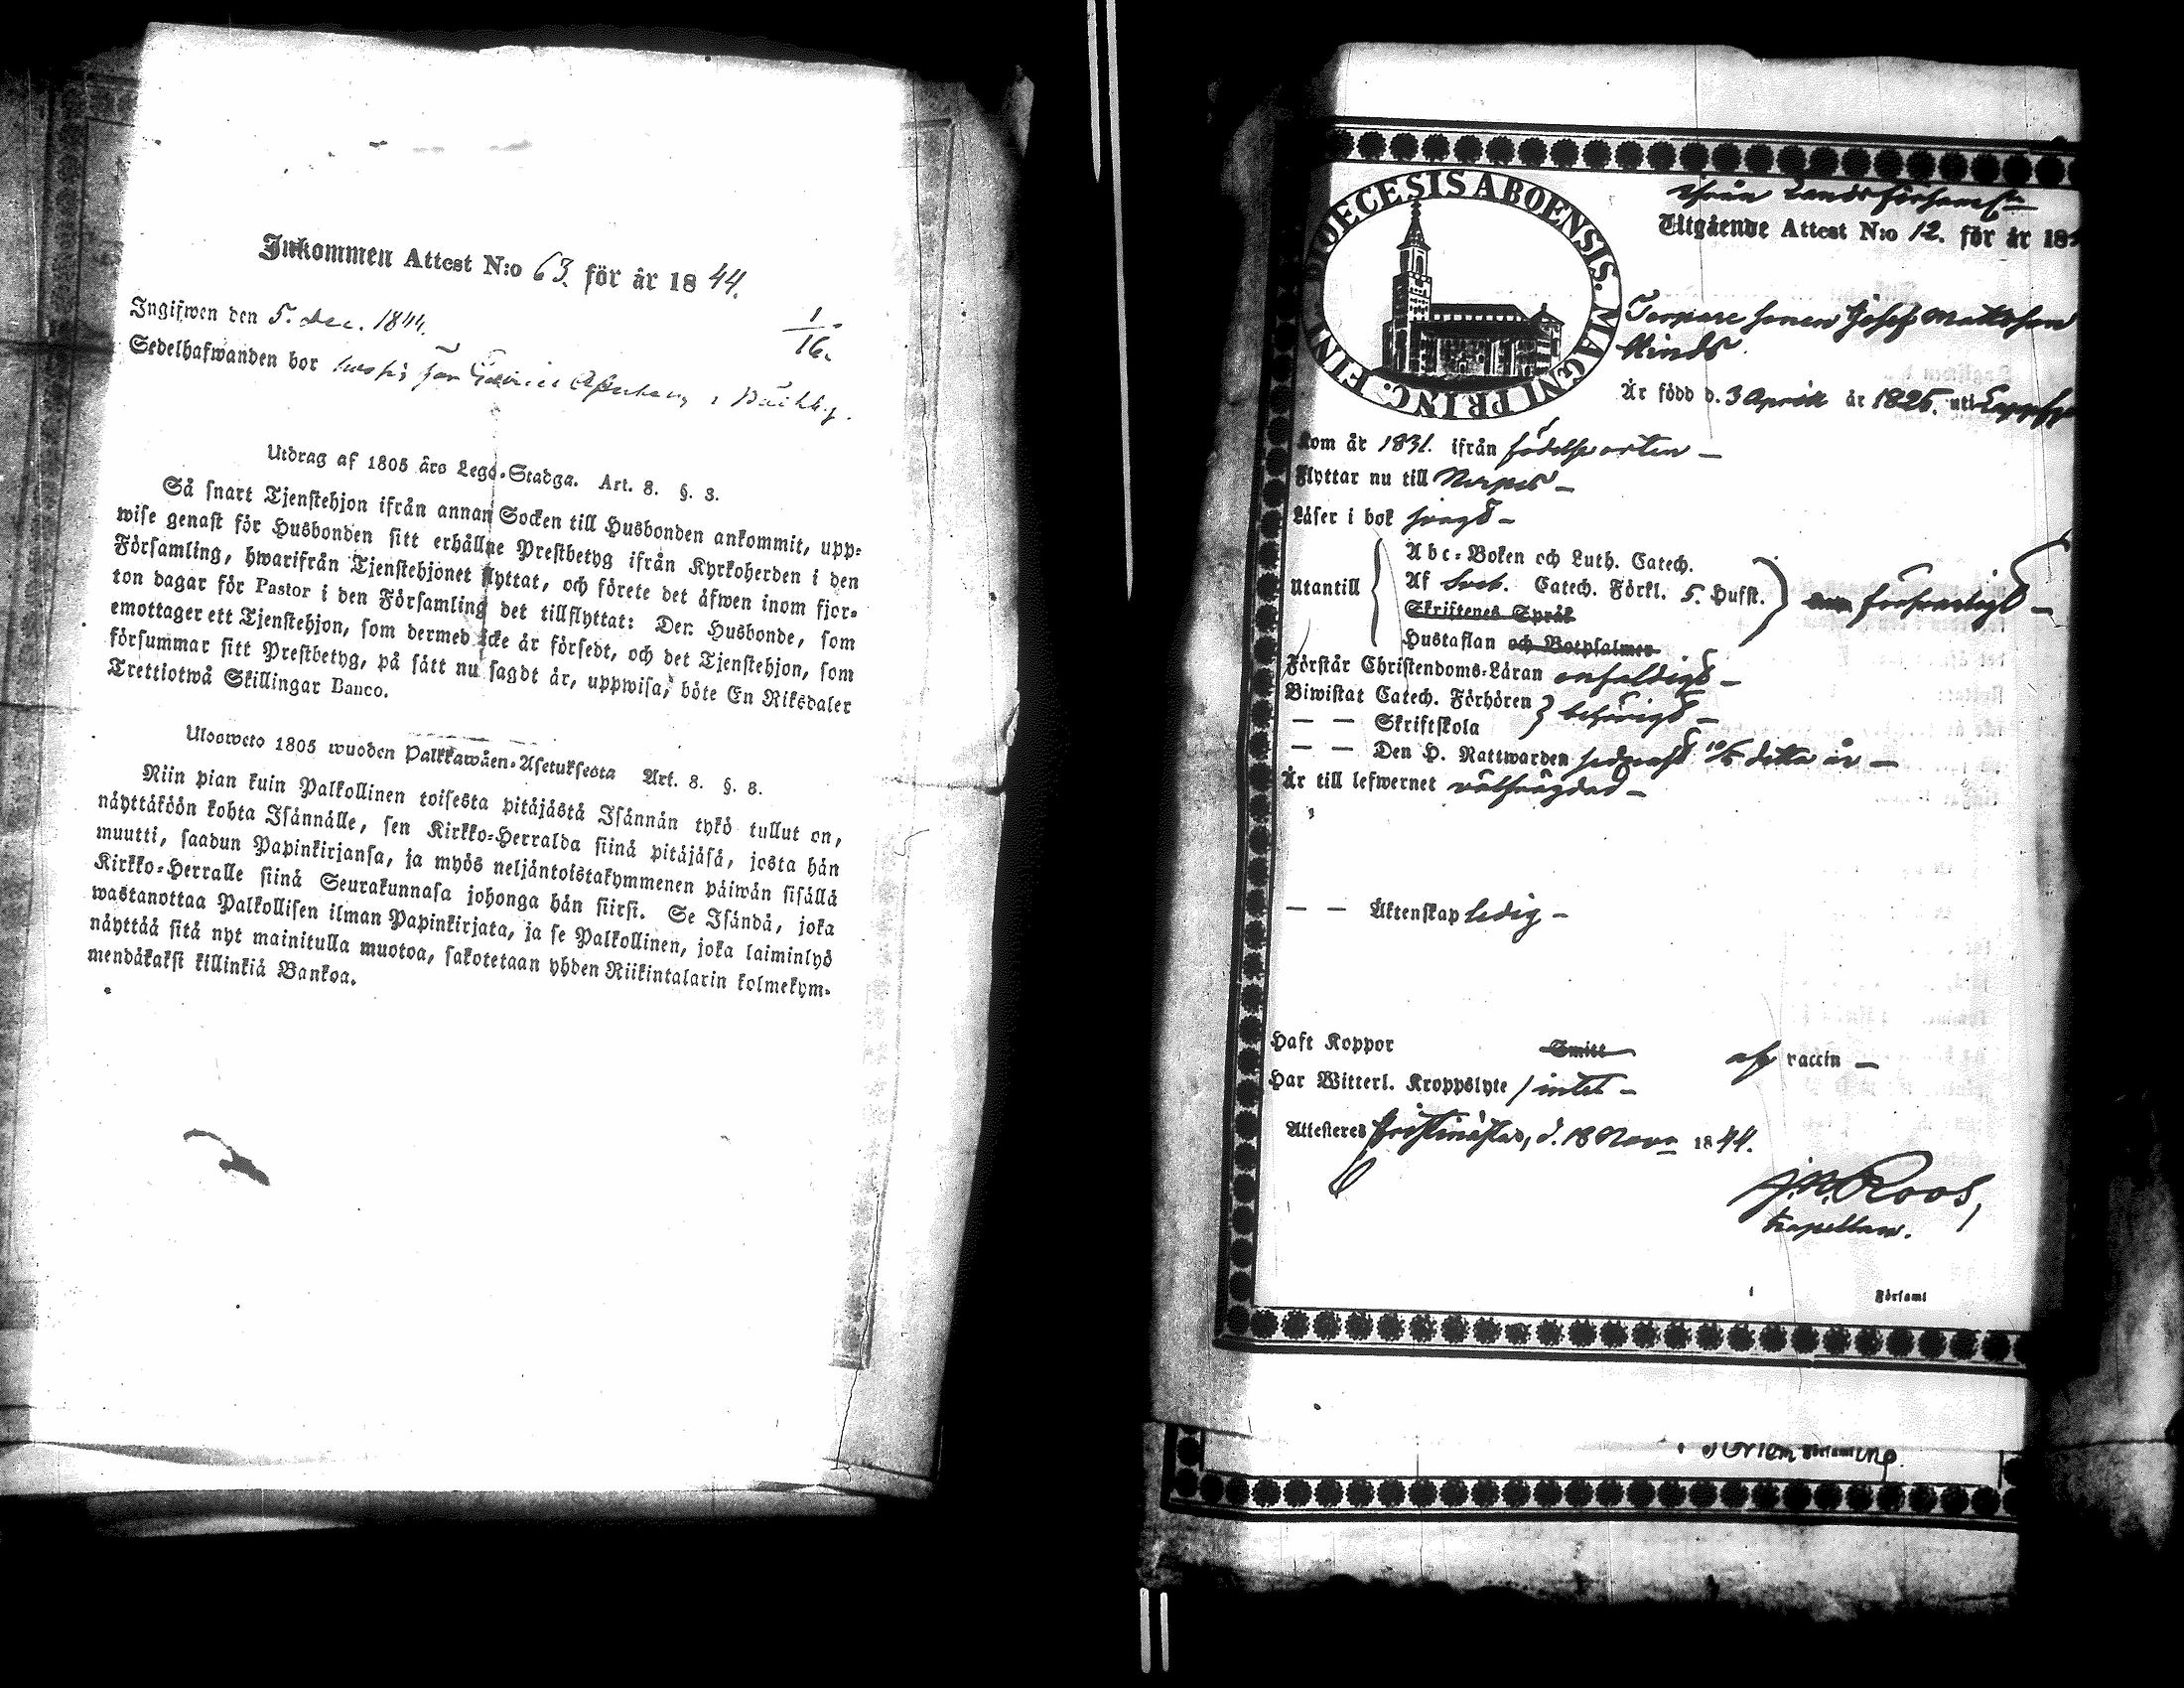 Inkommen Attest N:o 63. för år 1844.
Ingifwen den 5. dec. 1844.
1/16.
Sedelhafwanden bor
Utdrag af 1805 års Lego-Stadga. Art. 8. §. 3.
Så snart Tjenstehjon ifrån annan Socken till Husbonden ankommit, upp-
wise genast för Husbonden sitt erhållne Prestbetyg ifrån Kyrkoherden i den
Församling, hwarifrån Tjenstehjonet flyttat, och förete det äfwen inom fjor-
ton dagar för Pastor i den Församling det tillflyttat: Den Husbonde, som
emottager ett Tjenstehjon, som dermed icke är försedt, och det Tjenstehjon, som
försummar sitt Prestbetyg, på sätt nu sagdt är, uppwisa, böte En Riksdaler
Trettiotwå Skillingar Banco.
Ulosweto 1805 wuoden Palkkawäen-Asetuksesta Art. 8. §. 3.
Niin pian kuin Palkollinen toisesta pitäjästä Isännän tykö tullut on,
näyttäköön kohta Isännälle, sen Kirkko-Herralda siinä pitäjäsä, josta hän
muutti, saadun Papinkirjansa, ja myös neljäntoistakymmenen päiwän sisällä
Kirkko-Herralle siinä Seurakunnasa johonga hän siirsi. Se Isändä, joka
wastanottaa Palkollisen ilman Papinkirjata, ja se Palkollinen, joka laiminlyö
näyttää sitä nyt mainitulla muotoa, sakotetaan yhden Riikintalarin kolmekym-
mendäkaksi killinkiä Bankoa.
DIOECESIS ABOENSIS. MAGNI PRINC. FINL.
ifrån Landsförsaml.
Utgående Attest N:o 12. för år 18
Torpare sonen Josef Mattsson
Kinds
Är född d. 3 April år 1826. uti Lappfj
Kom år 1831. ifrån födelseorten –
Flyttar nu till Nerpes –
Läser i bok svagt –
Utantill
Abc-Boken och Luth. Catech.
Af Sveb. Catech. Förkl. 5. Hufst.
Skriftenes Språk
Hustaflan och Botpsalmer
försvarligt –
Förstår Christendoms-Läran enfaldigt –
Biwistat Catech. Förhören
— — Skriftskola
behörigt –
— — Den H. Nattwarden sednast detta år –
Är till lefwernet välfrägdad –
— — Äktenskap ledig –
Haft Koppor Smitt af vaccin –
Har Witterl. Kroppslyte intet –
Attesteras Christinæstad, d. 18 Nov. 1844.
J. N. Roos,
Kapellan.
Församl
Församling.